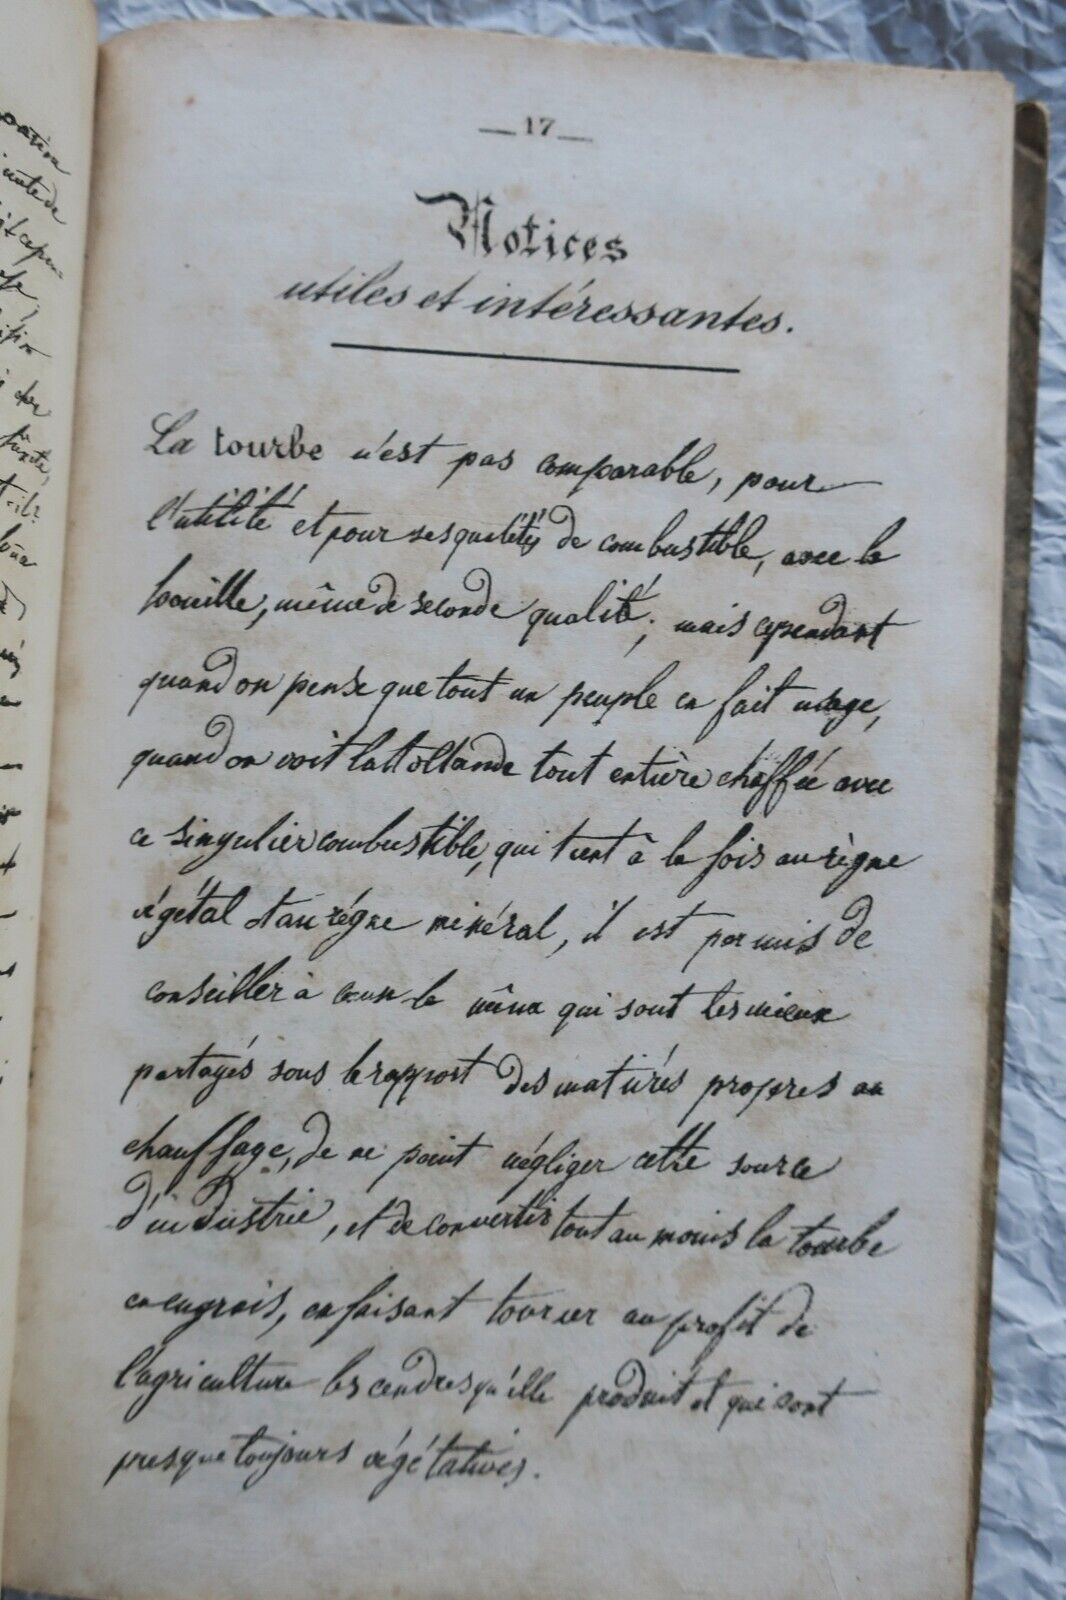 — 17 —
Notices
utiles et intéressantes.
La tourbe n'est pas comparable, pour
l'utilité et pour ses qualités de combustible, avec la
houille, même de seconde qualité; mais cependant
quand on pense que tout un peuple en fait usage,
quand on voit la Hollande tout entière chaffée avec
ce singulier combustible, qui tient à la fois au règne
végétal et au régne minéral, il est permis de
conseiller à ceux là même qui sont les mieux
partagés sous le rapport des matiéres propres au
chauffage, de ne point négliger cette source
d'industrie, et de convertir tout au moins la tourbe
en engrais, en faisant tourner au profit de
l'agriculture les cendres qu'elle produit et qui sont
presque toujours végétatives.